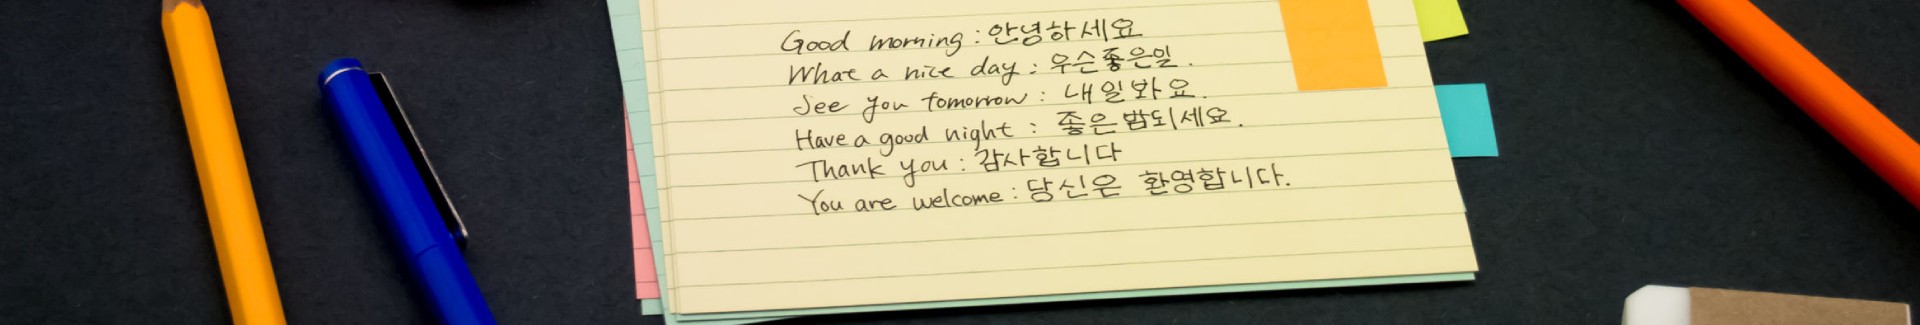 Good morning : 안녕하세요
What a nice day : 우슨좋은일.
See you tomorrow : 내일봐요.
Have a good night : 좋은밤되세요.
Thank you : 감사합니다
You are welcome : 당신은 환영합니다.